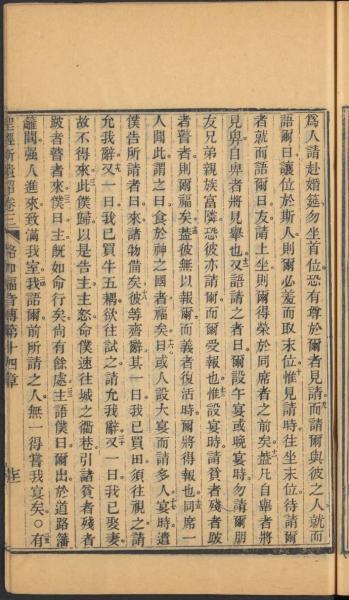 爲人請赴婚筵勿坐首位恐有尊於爾者見請而請爾與彼之人就而
語爾曰讓位於斯人則爾必羞而取末位惟見請時往坐末位待請爾
者就而語爾曰友請上坐則爾得榮於同席者之前矣蓋凡自舉者將
見卑自卑者將見舉也又語請之者曰爾設午宴或晚宴時勿請爾朋
友兄弟親族富隣恐彼亦請爾而爾受報也惟設宴時請貧者殘者跛
者瞽者則爾福矣蓋彼無以報爾而義者復活時爾將得報也同席一
人聞此謂之曰食於神之國者福矣曰或人設大宴而請多人宴時遣
僕告所請者曰來諸物備矣彼等齊辭其一曰我已買田須往視之請
允我辭又一曰我已買牛五耦欲往試之請允我辭又一曰我已娶妻
故不得來此僕歸以是告主主怒命僕速往城之衢巷引諸貧者殘者
跛者瞽者來僕曰主旣如命行矣尙有餘處主語僕曰爾出於道路藩
籬間强人進來致滿我室我語爾前所請之人無一得嘗我宴矣○有
聖經新遺詔卷三 路加福音傳第十四章